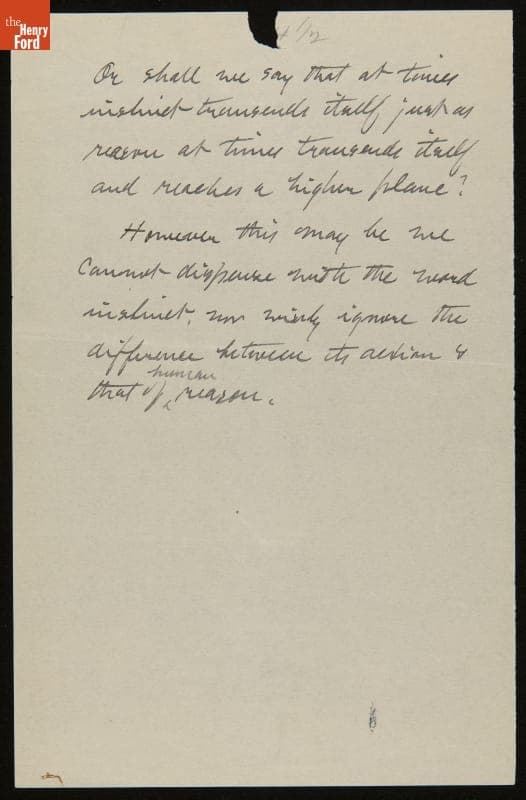 the
Henry
Ford
4 1/2
Or shall we say that at times
instinct transends itself just as
reason at times transends itself
and reaches a higher plane?
However this may be we
cannot dispense with the word
instinct, nor wisely ignore the
difference between its action &
human
that of ^ reason.